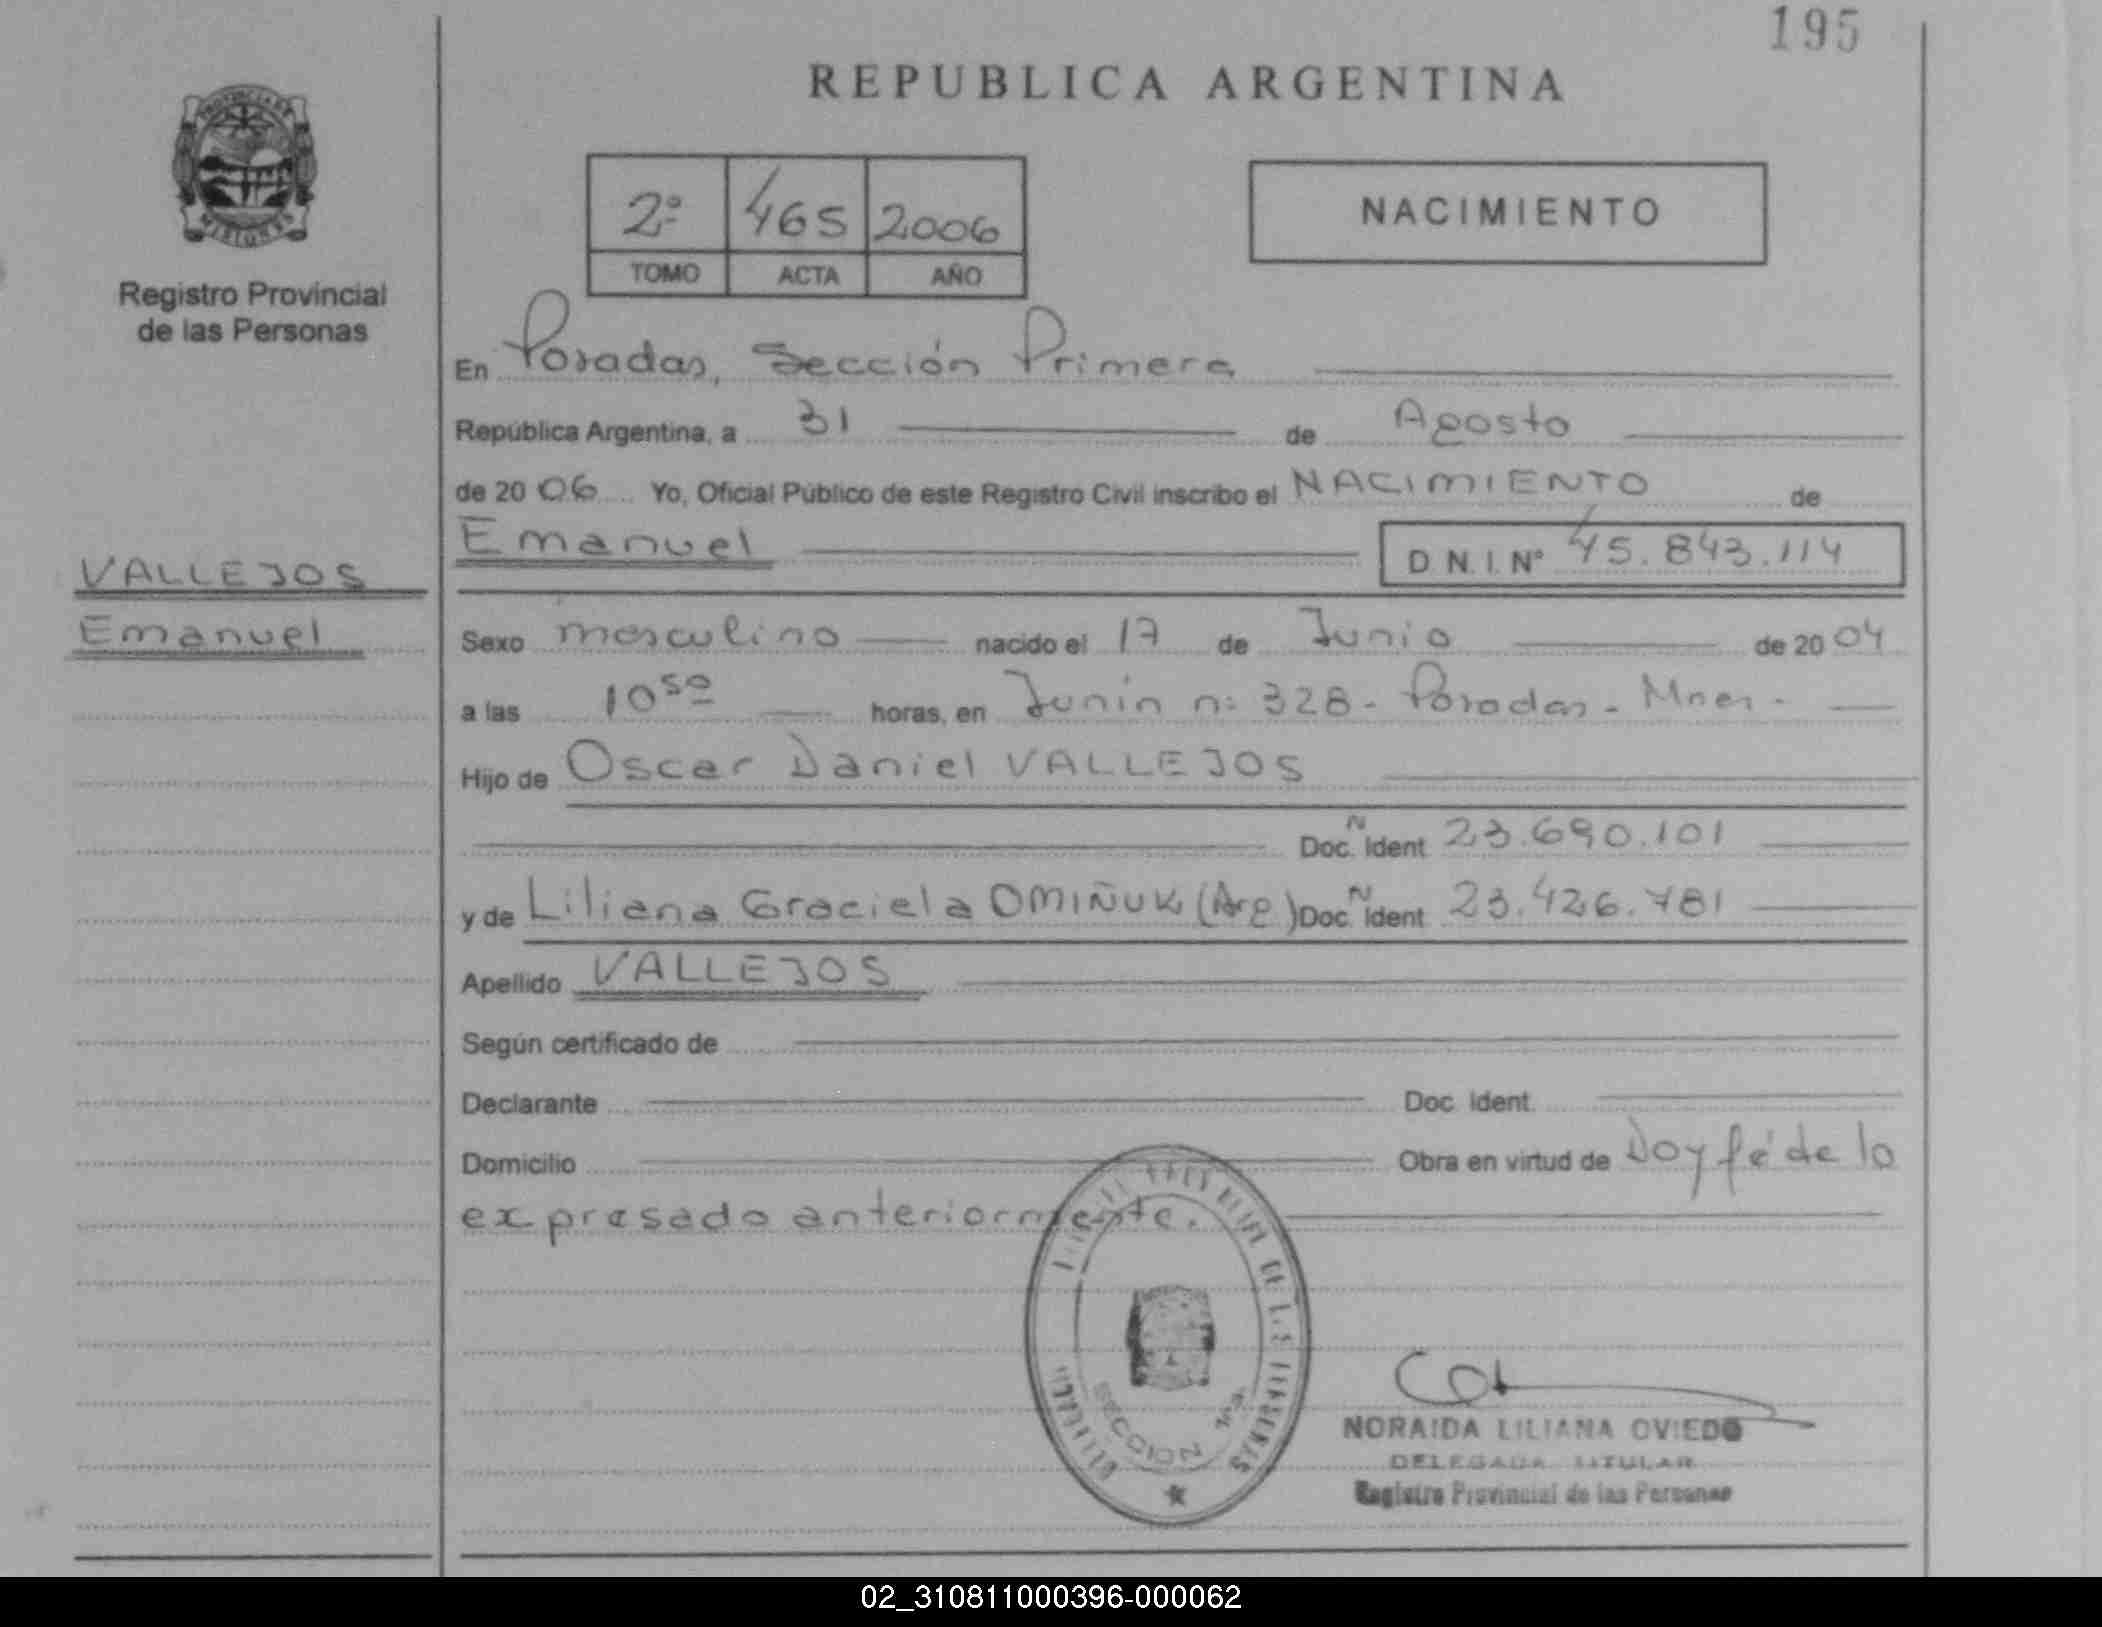 195
REPUBLICA ARGENTINA
PROVINCIA DE
MISIONES
Registro Provincial
de las Personas
2º 465 2006
TOMO ACTA AÑO
NACIMIENTO
En Posadas, Sección Primera
República Argentina, a 31 de Agosto
de 20 06 Yo, Oficial Público de este Registro Civil inscribo el NACIMIENTO de
Emanuel D.N.I. Nº 45.843.114
VALLEJOS
Emanuel
Sexo masculino nacido el 17 de Junio de 20 04
a las 10 50 horas, en Junín nº 328 - Posadas - Mnes -
Hijo de Oscar Daniel VALLEJOS
Doc. N Ident 23.690.101
y de Liliana Graciela OMIÑUK (Arg) Doc. N Ident 23.426.781
Apellido VALLEJOS
Según certificado de
Declarante Doc. Ident.
Domicilio Obra en virtud de Doy fé de lo
expresado anteriormente.
DE LAS PERSONAS
SECCION 1ra
NORAIDA LILIANA OVIEDO
DELEGADA TITULAR
Registro Provincial de las Personas
02_310811000396-000062